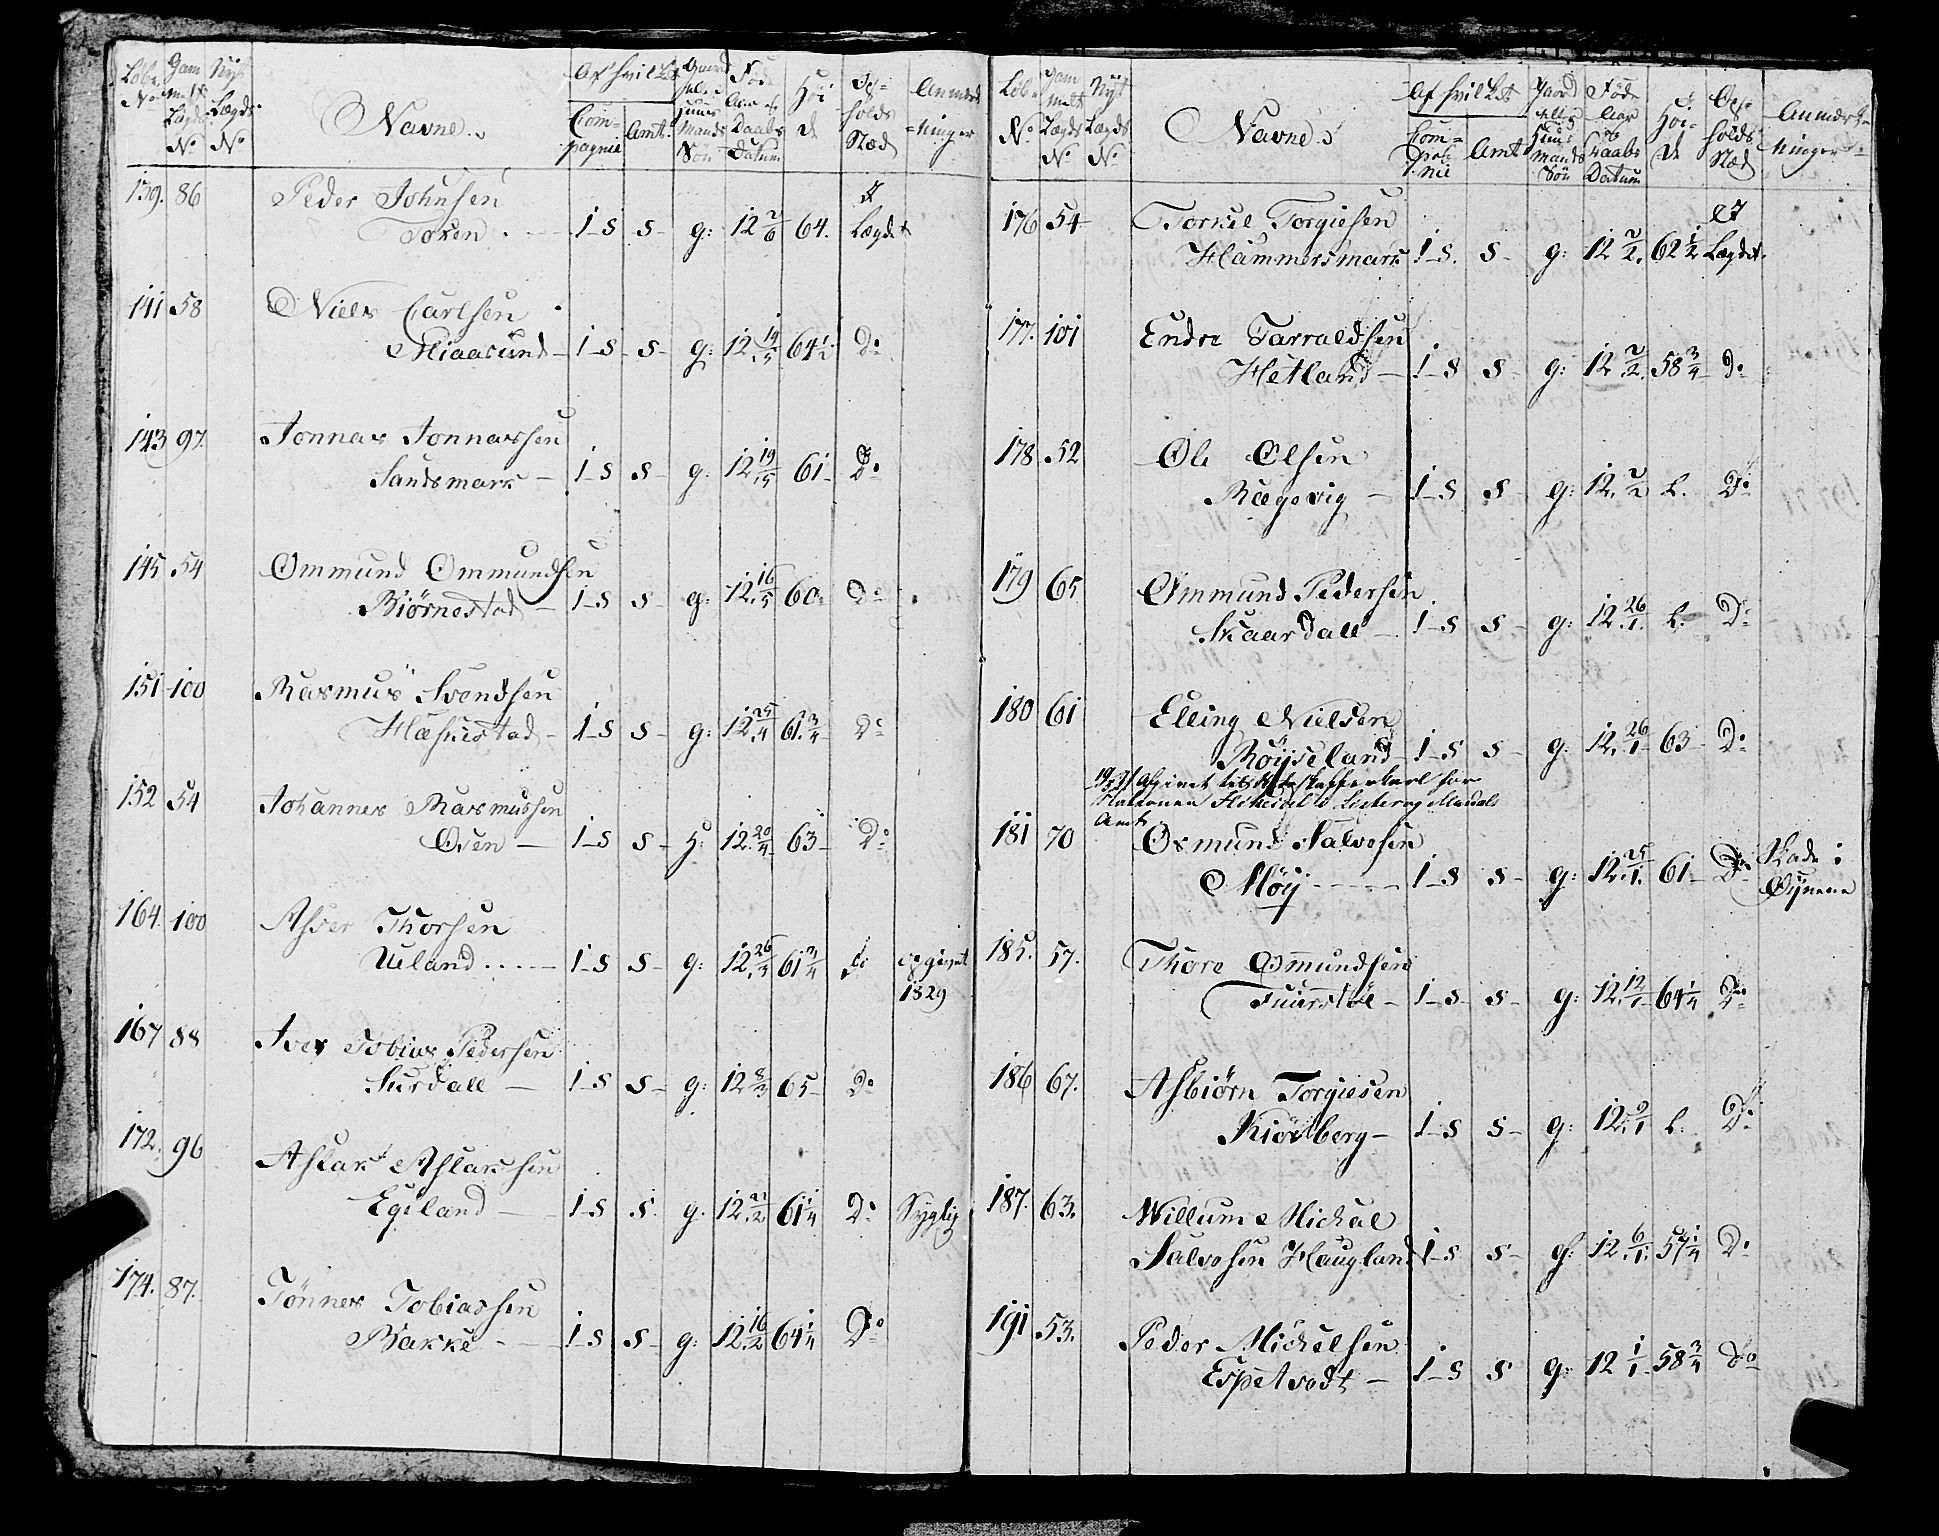 Løbe No Gammelt Lægds No Nyt Lægds No Navne. Af hvilket Compagnie Amt. Gaard eller Huus Mands Søn Føde Aar og Daabs Datum Høide Opholds Stæd Anmærkninger
139. 86 Peder Johnsen
Tosen 1-S S- g: 12 2/6 64. I Lægdet
141 58 Niels Carlsen
Miaasund 1-S S- g: 12 14/5 64½ Do
143 97. Jonnas Jonnassen
Sandsmark 1-S S- g: 12 19/5 61- Do
145 54 Ommund Ommundsen
Biørnestad 1-S S- g: 12. 16/5 60. Do
151 100 Rasmus Svendsen
Hæsnestad 1-S S- g: 12 25/4 61¾ Do
152 54 Johannes Rasmussen
Osen 1-S S- H: 12. 20/4 63- Do
164. 100 Asser Thorsen
Ueland 1-S S- g: 12 26/3 61¾ Do opgivet 1829
167 88 Iver Tobias Pedersen
Surdall 1-S S- g: 12 8/3 65- Do
172. 96 Aslak Aslaksen
Egeland 1-S S. g. 12 22/2 61¼ Do Syglig
174. 87. Tønnes Tobiassen
Bakke 1-S S- g: 12. 16/2 64¼ Do
Løbe No Gammelt Lægds No Nyt Lægds No Navne. Af hvilket Compagnie Amt Gaard eller Huus Mands Søn Føde Aar og Daabs Datum Høide Opholds Stæd Anmærkninger
176 54 Torkel Torgiesen
Hammersmark 1-S. S- g: 12 2/2. 62½ I Lægdet.
177. 101 Endre Tarraldsen
Hetland 1-S S- g: 12 2/2. 58¾ do
178. 52 Ole Olsen
Rægevig 1-S S- g: 12. 2/2 L. Do
179 65 Ommund Pedersen
Skaardall 1-S S- g: 12. 26/1. L. Do
180 61 Elling Nielsen
Røyseland 1-S S- g: 12. 26/1 63- Do
Stationen i Lister og Mandals
Amt
181 70 Osmund Salvesen
Møy 1-S S- g: 12. 25/1. 61- Do Skade i Øynene
185. 57. Thore Osmundsen
1-S S- g: 12. 12/1 64¼ Do
186 67. Asbiørn Torgiesen
Kiørlberg 1-S S- g: 12. 9/1 L. Do
187. 63. Willum Michal
Salvesen Haugland 1-S S- g: 12. 6/1. 57¼ Do
191 53. Peder Michelsen
Espetvedt 1-S S g: 12 1/1 58¾ do